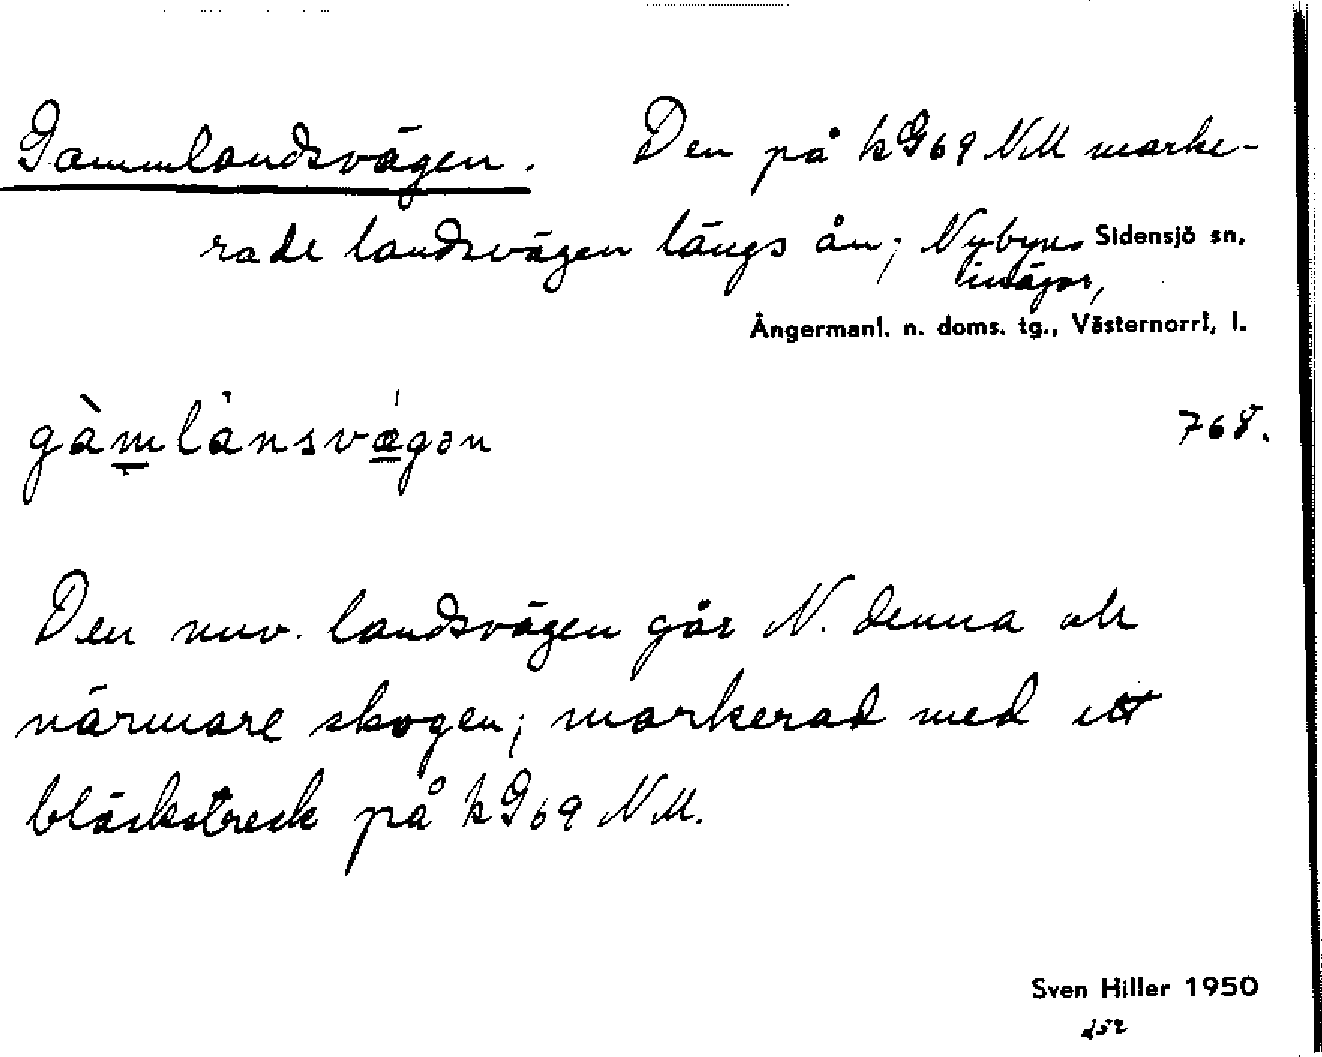 Gammlandsvägen. Den på kG69 NM marke-
rade landsvägen längs ån; Nybyns Sidensjö sn,
inägor,
Ångermanl. n. doms. tg., Västernorrl, l.
gàmlànsvǽgən 768.
Den nuv. landsvägen går N. denna och
närmare skogen; markerad med ett
bläckstreck på kG69 NM.
Sven Hiller 1950
252